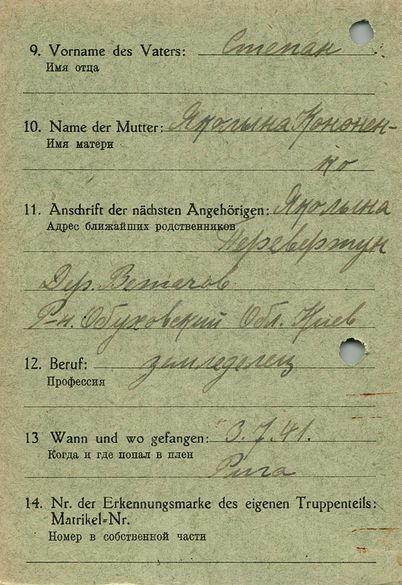 9. Vorname des Vaters: Степан
Имя отца
10. Name der Mutter: Яколына Кононен-
Имя матери
ко
11. Anschrift der nächsten Angehörigen: Яколына
Адрес ближайших родственников
Перевертун
Дер. Ветачов
Р-н. Обуховский Обл. Киев
12. Beruf: земледелец
Профессия
13 Wann und wo gefangen: 3.7.41.
Когда и где попал в плен
Рига
14. Nr. der Erkennungsmarke des eigenen Truppenteils:
Matrikel-Nr.
Номер в собственной части